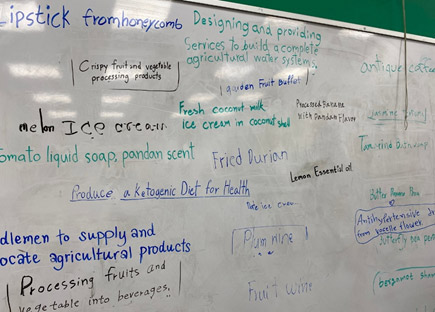 Lipstick from honeycomb
Designing and providing
Services to build a complete
agricultural water systems,
Crispy fruit and vegetable
processing products
garden Fruit Buffet
antique
Fresh coconut milk
Ice cream in coconut shell
Processed Banana
With Pandan Flavor
melon Ice cream
omato liquid soap, pandan scent
Fried Durian
Lemon Essential oil
Produce a Ketogenic Diet for Health
ice cream
Butter
Antihypertensive
from
flower
dlemen to supply and
ocate agricultural products
Plum wine
Butterfly pea
Processing fruits and
vegetable into beverages.
Fruit wine
bergamot